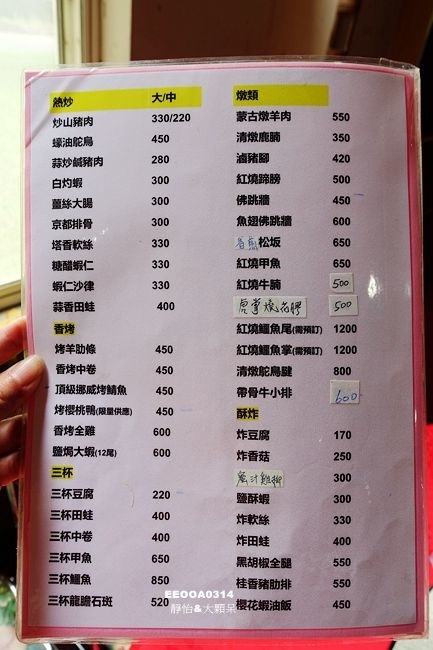 熱炒 大/中
炒山豬肉 330/220
蠔油鴕鳥 450
蒜炒鹹豬肉 280
白灼蝦 300
薑絲大腸 300
京都排骨 300
塔香軟絲 330
糖醋蝦仁 330
蝦仁沙律 330
蒜香田蛙 400
香烤
烤羊肋條 450
香烤中卷 450
頂級挪威烤鯖魚 450
烤櫻桃鴨(限量供應) 450
香烤全雞 600
鹽焗大蝦(12尾) 600
三杯
三杯豆腐 220
三杯田蛙 400
三杯中卷 400
三杯甲魚 650
三杯鱷魚 850
三杯龍膽石斑 520
燉類
蒙古燉羊肉 550
清燉鹿腩 350
滷豬腳 420
紅燒蹄膀 500
佛跳牆 450
魚翅佛跳牆 600
松坂 650
紅燒甲魚 650
紅燒牛腩 500
虎掌燒花膠 500
紅燒鱷魚尾(需預訂) 1200
紅燒鱷魚掌(需預訂) 1200
清燉鴕鳥腱 800
帶骨牛小排 600
酥炸
炸豆腐 170
炸香菇 250
蜜汁雞柳 300
鹽酥蝦 300
炸軟絲 330
炸田蛙 400
黑胡椒全腿 550
桂香豬肋排 550
櫻花蝦油飯 450
EEOOA0314
靜怡&大顆呆